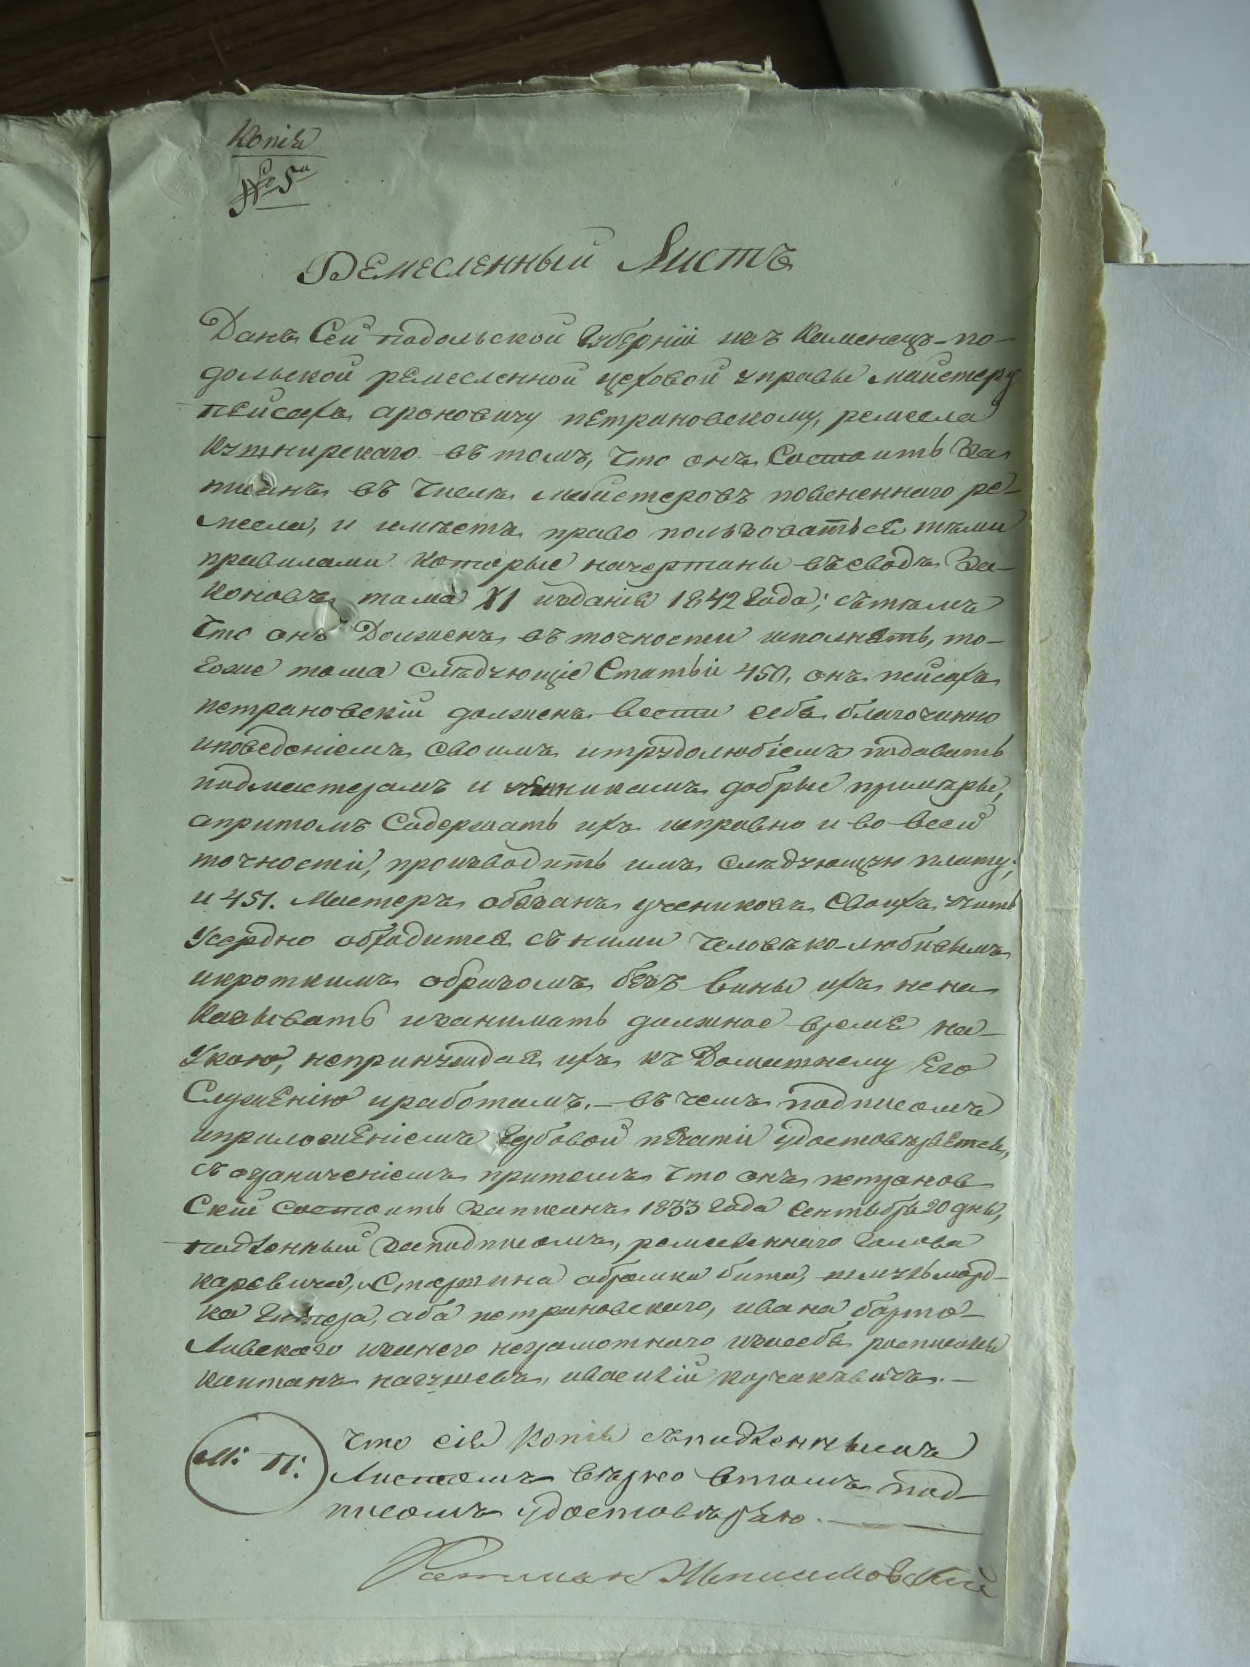 Копія
№ 5й
Ремесленный Листъ
Данъ Сей подольской Губерніи изъ Каменецъ-по-
дольской ремесленной цеховой управы майстеру
пейсахъ ароновичу петрановскому, ремесла
Кушнирскаго въ томъ, что онъ Состоитъ За
писанъ въ числѣ майстеровъ повененного ре-
месла, и имѣетъ право пользоватьсе тѣми
правилами которые начертаны въ сводѣ За-
коновъ тома XI изданіе 1842 года; сътѣмъ
что онъ Долженъ въ точности исполнять, то-
гоже тома слѣдующіе Статьи 450, онъ пейсахъ
петрановскій долженъ вести себя благочинно
иповеденіемъ своимъ итрудолюбіемъ подавать
подмастерамъ и ученикамъ добрые примѣры,
апритомъ Содержать ихъ исправно и во всей
точности, производить имъ слѣдующую плату;
и 451. Мастеръ обязанъ учениковъ своихъ учить
Усердно обходится съ ними человѣко-любивымъ
икроткимъ образомъ безъ вины ихъ нена
казывать изанимать должное время на-
Укою, непринуждая ихъ къ Домашнему Его
Служенію иработамъ, – въ чемъ подписомъ
иприложеніемъ гербовой печати удостовѣряется,
съ ограниченіемъ притомъ что онъ петранов
Скій состоитъ записанъ 1833 года Сентября 20 дня,
подленный заподписомъ, ремесленного Голова
Старшина
аба петрановского, ивана барто-
неграмотного
Капитанъ
М: П:
Что сія Копія съподленнымъ
Листомъ вѣрно втомъ под-
писомъ удостовѣряю. –
Ратман